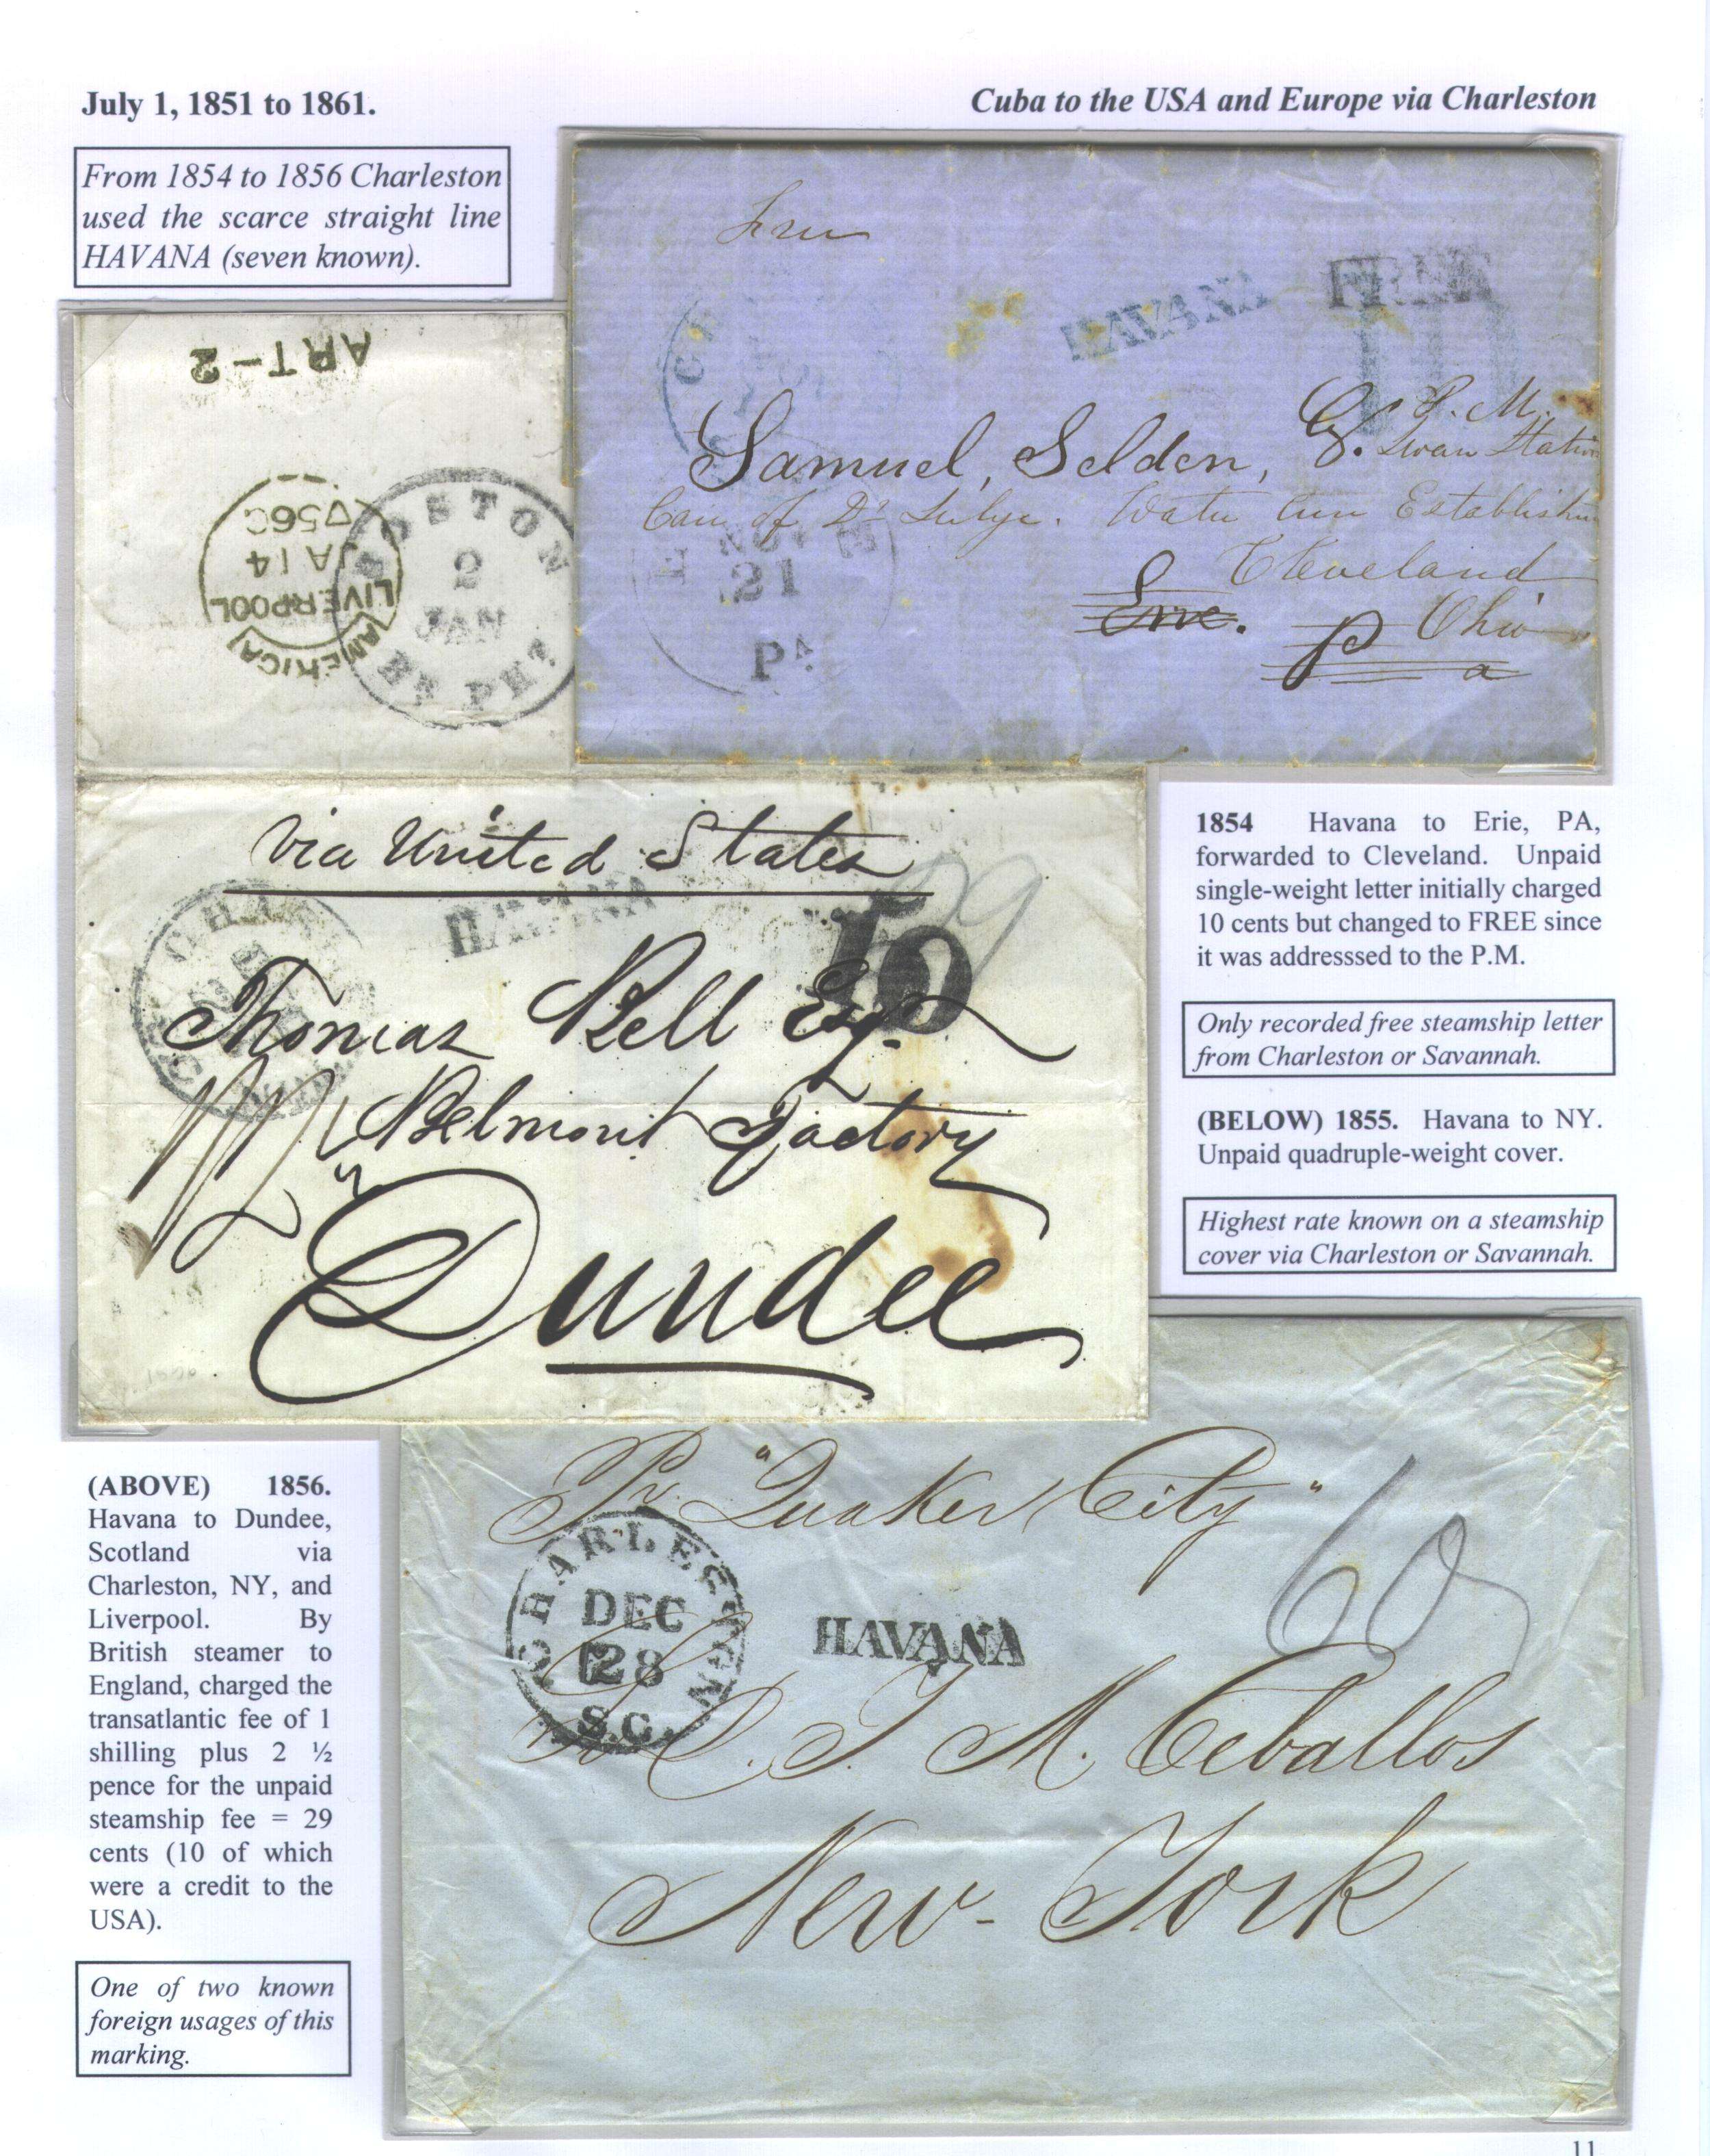 July 1, 1851 to 1861.
Cuba to the USA and Europe via Charleston
From 1854 to 1856 Charleston
used the scarce straight line
HAVANA (seven known).
HAVANA
FREE
10
P. M.
Samuel, Selden,
Swan Station
Water Cure
Cleveland
Erie.
Ohio
Pa
NOV
21
Pᴬ
ART-2
AMERICA
LIVERPOOL
JA 14
BOSTON
2
JAN
BR PKT
via United States
HAVANA
10
29
Thomas Bell Esqr.
Belmont Factory
Dundee
1854 Havana to Erie, PA,
forwarded to Cleveland. Unpaid
single-weight letter initially charged
10 cents but changed to FREE since
it was addresssed to the P.M.
Only recorded free steamship letter
from Charleston or Savannah.
(BELOW) 1855. Havana to NY.
Unpaid quadruple-weight cover.
Highest rate known on a steamship
cover via Charleston or Savannah.
Pr "Quaker City"
60
CHARLESTON
DEC
28
S.C.
HAVANA
M. Ceballos
New-York
(ABOVE) 1856.
Havana to Dundee,
Scotland via
Charleston, NY, and
Liverpool. By
British steamer to
England, charged the
transatlantic fee of 1
shilling plus 2 ½
pence for the unpaid
steamship fee = 29
cents (10 of which
were a credit to the
USA).
One of two known
foreign usages of this
marking.
11